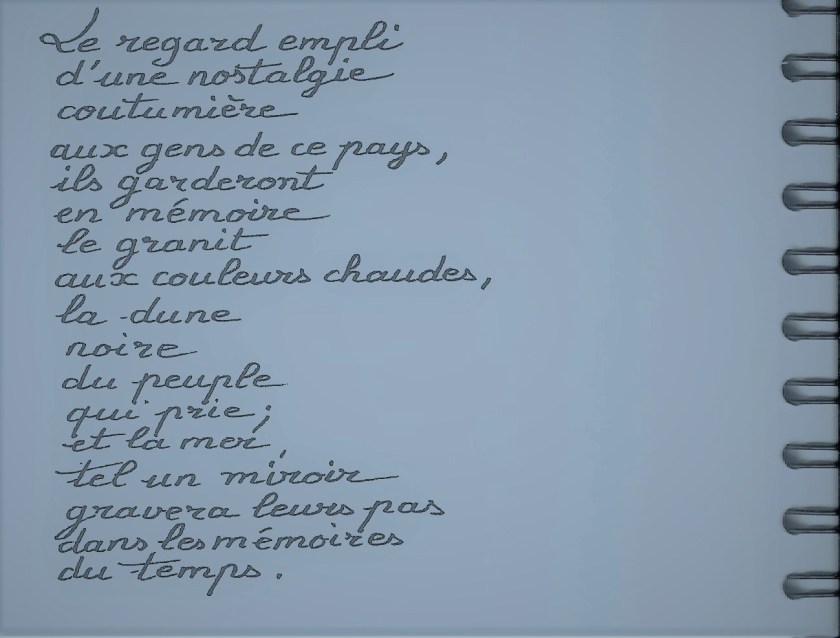 Le regard empli
d'une nostalgie
coutumière
aux gens de ce pays,
ils garderont
en mémoire
le granit
aux couleurs chaudes,
la dune
noire
du peuple
qui prie ;
et la mer,
tel un miroir
gravera leurs pas
dans les mémoires
du temps.